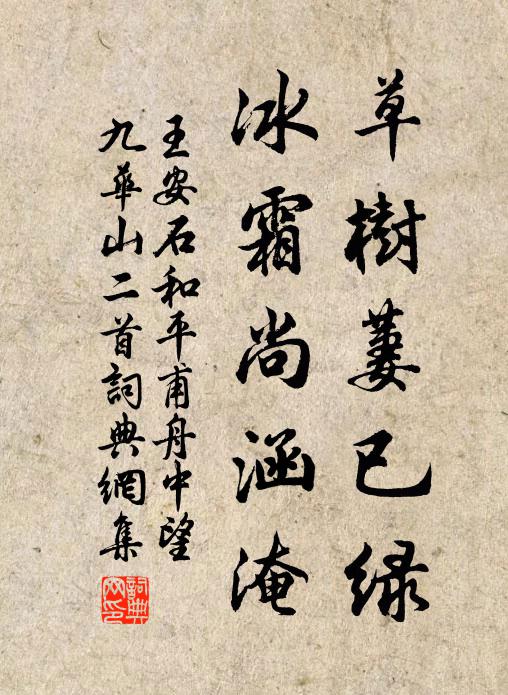 草樹萋已綠
冰霜尚涵淹
王安石和平甫舟中望
九華山二首詞典網集
詞典
網印